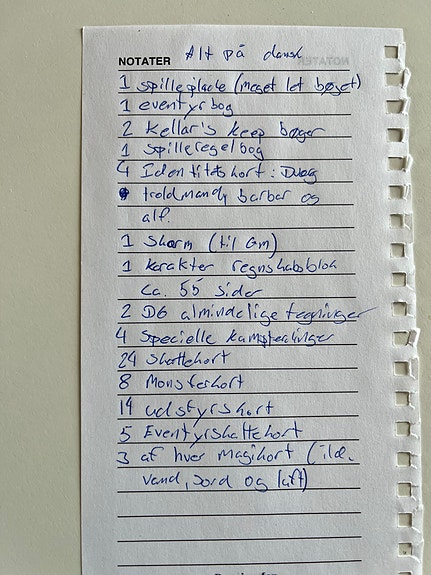 NOTATER Alt på dansk
NOTATER
1 spilleplade (meget let bøjet)
1 eventyrbog
2 Kellar's Keep bøger
1 spilleregelbog
4 Identitetskort: Dværg
troldmand, barbar og
alf.
1 Skærm (til Gm)
1 karakter regnskabsblok
ca. 55 sider
2 D6 almindelige tegninger
4 specielle kampterninger
24 Skattekort
8 Monsterkort
14 udstyrskort
5 Eventyrskattekort
3 af hver magikort (ild,
vand, jord og luft)